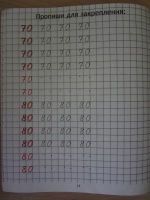 Прописи для закрепления:
70 70 70 70
70 70 70 70
70 70 70 70
70 70 70 70
70
70
80 80 80 80
80 80 80 80
80 80 80 80
80 80 80 80
80
80